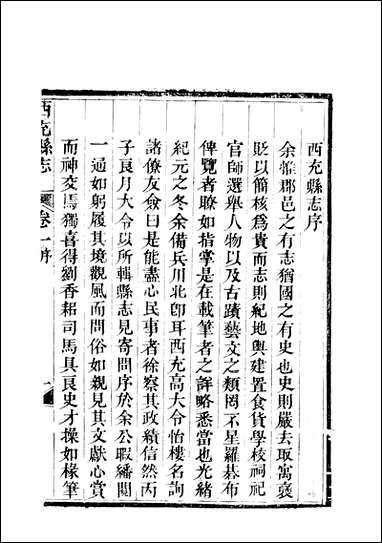 西充縣志序
余惟郡邑之有志猶國之有史也史則嚴去取寓褒
貶以簡核為貴而志則紀地輿建置食貨學校祠祀
官師選舉人物以及古蹟藝文之類罔不星羅碁布
俾覽者瞭如指掌是在載筆者之詳略悉當也光緒
紀元之冬余備兵川北卽耳西充高大令怡樓名詢
諸僚友僉曰是能盡心民事者徐察其政績信然丙
子良月大令以所輯縣志見寄問序於余公暇繙閱
一過如躬履其境觀風而問俗如親見其文獻心賞
而神交焉獨喜得劉香耜司馬具良史才操如椽筆
西充縣志
卷一序
一